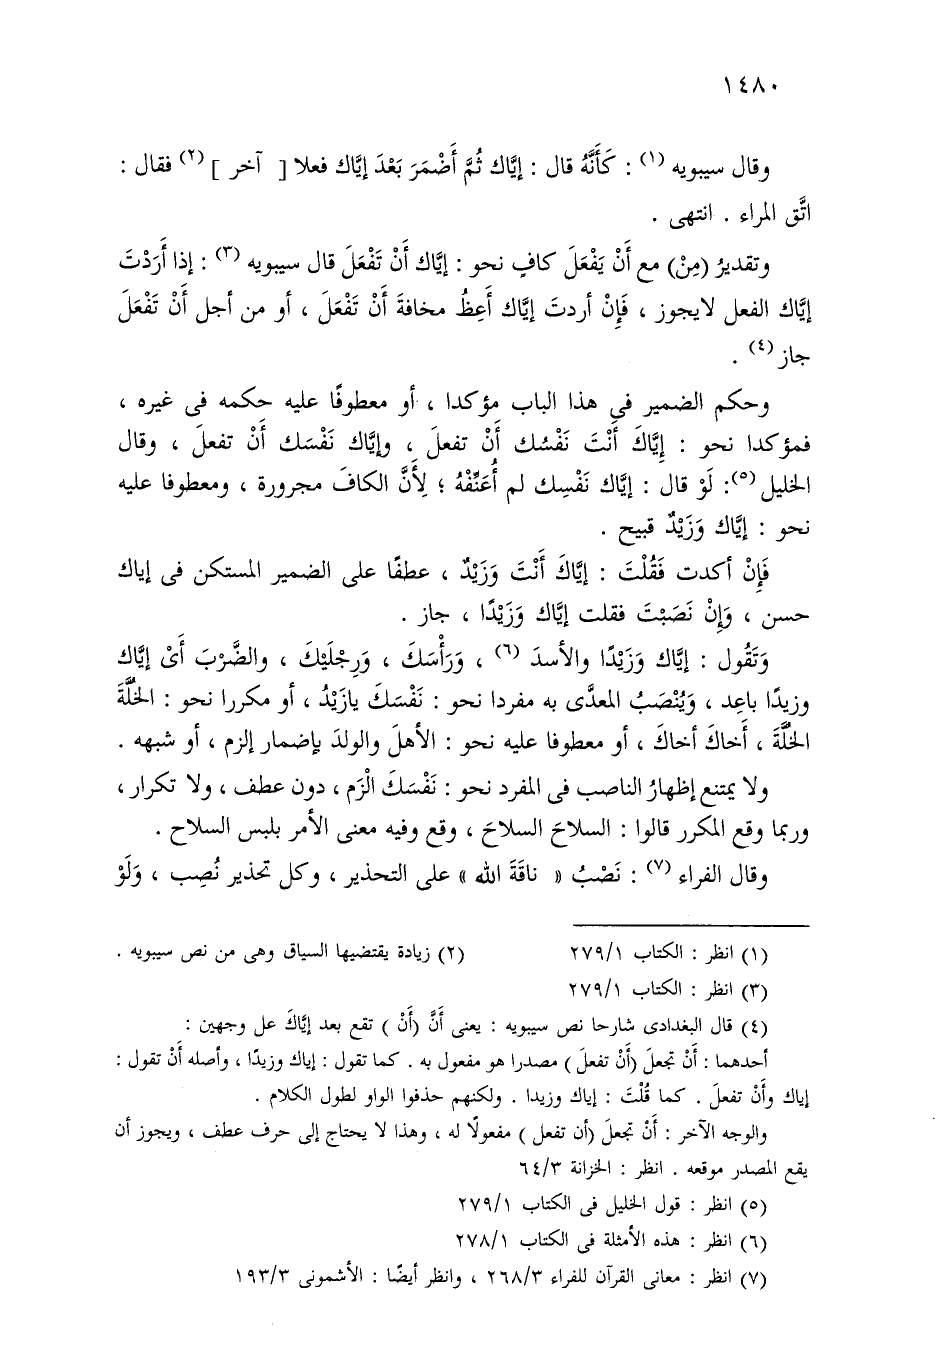 ١٤٨٠
وقال سيبويه (١) : كَأَنَّهُ قال : إيَّاك ثُمَّ أَضْمَرَ بَعْدَ إيَّاك فعلا [ آخر ] (٢) فقال :
اتَّق المراء . انتهى .
وتقديرُ (مِنْ) مع أَنْ يَفْعَلَ كافٍ نحو : إيَّاك أَنْ تَفْعَلَ قال سيبويه (٣) : إذا أَرَدْتَ
إيَّاك الفعل لايجوز ، فَإِنْ أردتَ إيَّاك أَعِظُ مخافةَ أَنْ تَفْعَلَ ، أو من أجل أَنْ تَفْعَلَ
جاز (٤) .
وحكم الضمير فى هذا الباب مؤكدا ، أو معطوفًا عليه حكمه فى غيره ،
فمؤكدا نحو : إِيَّاكَ أَنْتَ نَفْسُك أَنْ تفعلَ ، وإيَّاك نَفْسَك أَنْ تفعلَ ، وقال
الخليل (٥): لَوْ قال : إيَّاك نَفْسِك لم أُعَنِّفْهُ ؛ لِأَنَّ الكافَ مجرورة ، ومعطوفا عليه
نحو : إيَّاك وَزَيْدٌ قبيح .
فَإِنْ أكدت فَقُلْتَ : إيَّاكَ أَنْتَ وَزَيْدٌ ، عطفًا على الضمير المستكن فى إياك
حسن ، وَإِنْ نَصَبْتَ فقلت إيَّاك وَزَيْدًا ، جاز .
وَتَقُول : إيَّاك وَزَيْدًا والأسدَ (٦) ، وَرَأْسَكَ ، وَرِجْلَيْكَ ، والضَّرْبَ أَىْ إيَّاك
وزيدًا باعِد ، وَيُنْصَبُ المعدَّى به مفردا نحو : نَفْسَكَ يازَيْدُ ، أو مكررا نحو : الخُلَّةَ
الخُلَّةَ ، أَخاكَ أخاكَ ، أو معطوفا عليه نحو : الأهلَ والولدَ بإضمار إلزم ، أو شبهه .
ولا يمتنع إظهارُ الناصب فى المفرد نحو : نَفْسَكَ الْزَم ، دون عطف ، ولا تكرار ،
وربما وقع المكرر قالوا : السلاحَ السلاحَ ، وقع وفيه معنى الأمر بلبس السلاح .
وقال الفراء (٧) : نَصْبُ « ناقَةَ الله » على التحذير ، وكل تحذير نُصِب ، وَلَوْ
(١) انظر : الكتاب ٢٧٩/١ (٢) زيادة يقتضيها السياق وهى من نص سيبويه .
(٣) انظر : الكتاب ٢٧٩/١
(٤) قال البغدادى شارحا نص سيبويه : يعنى أَنَّ (أَنْ ) تقع بعد إيَّاكَ عل وجهين :
أحدهما : أَنْ تجعلَ (أَنْ تفعلَ ) مصدرا هو مفعول به . كما تقول : إياك وزيدًا ، وأصله أَنْ تقول :
إياك وأَنْ تفعلَ . كما قُلْتَ : إياك وزيدا . ولكنهم حذفوا الواو لطول الكلام .
والوجه الآخر : أَنْ تجعلَ (أن تفعل ) مفعولًا له ، وهذا لا يحتاج إلى حرف عطف ، ويجوز أن
يقع المصدر موقعه . انظر : الخزانة ٦٤/٣
(٥) انظر : قول الخليل فى الكتاب ٢٧٩/١
(٦) انظر : هذه الأمثلة فى الكتاب ٢٧٨/١
(٧) انظر : معانى القرآن للفراء ٢٦٨/٣ ، وانظر أيضًا : الأشمونى ١٩٣/٣